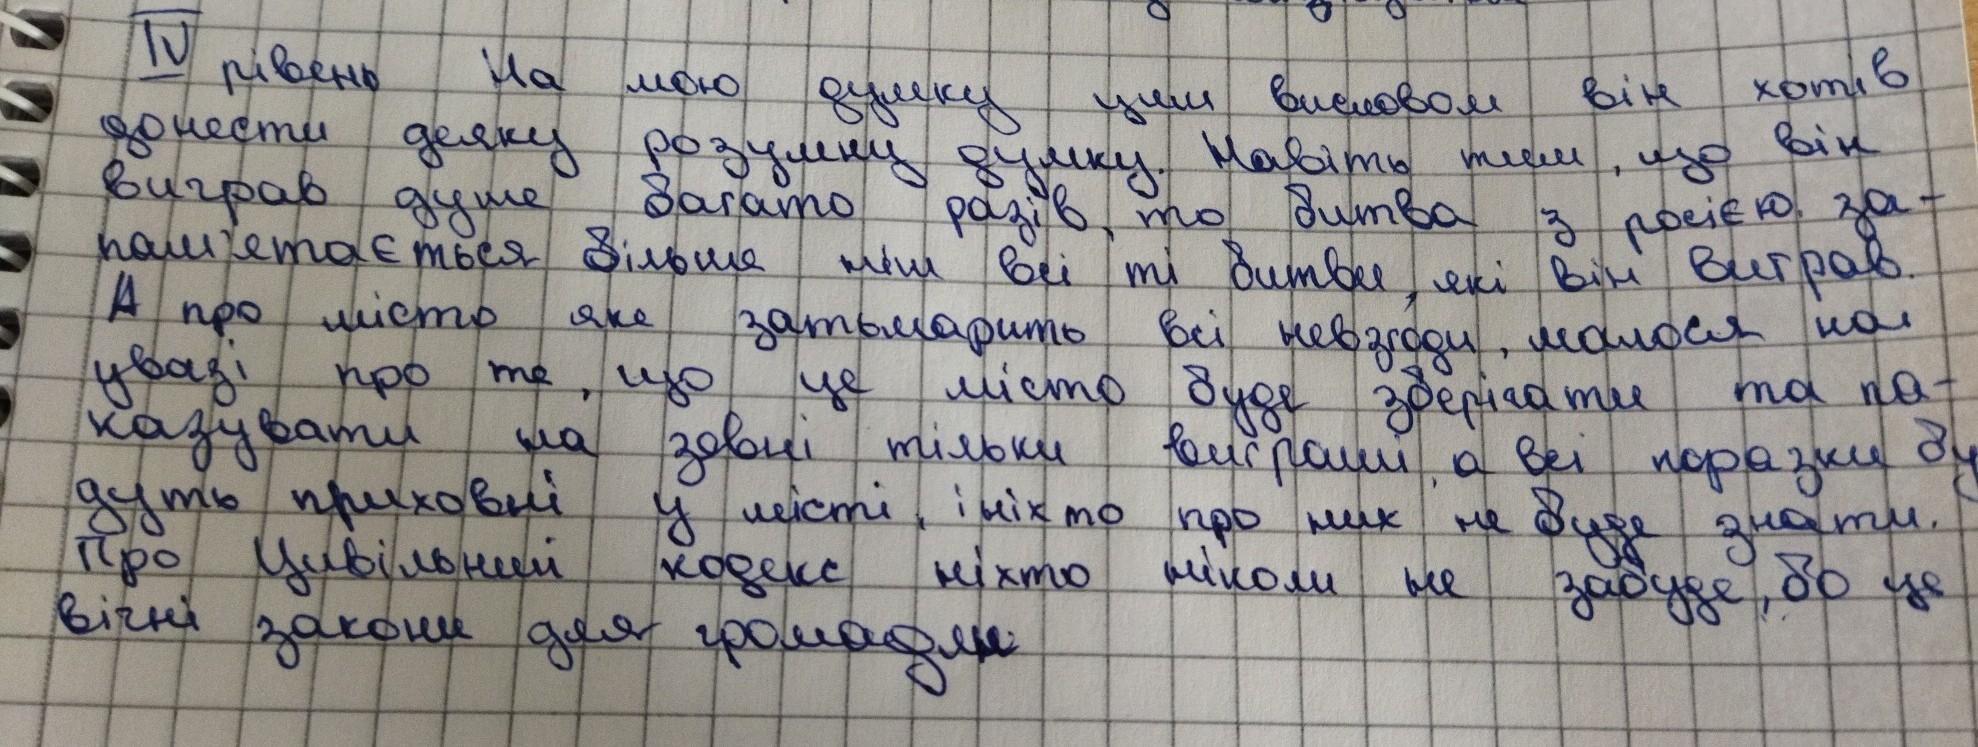 IV рівень На мою думку цим висловом він хотів
донести деяку розумну думку. Навіть тим, що він
виграв дуже багато разів, то битва з росією за-
пам'ятається більше ніж всі ті битви, які він виграв.
А про місто яке затьмарить всі невзгоди, малося на
увазі про те, що це місто буде зберігати та по-
казувати на зовні тільки виграші, а всі поразки бу
дуть приховні у місті, і ніхто про них не буде знати.
Про Цивільний кодекс ніхто ніколи не забуде, бо це
вічні закони для громадян